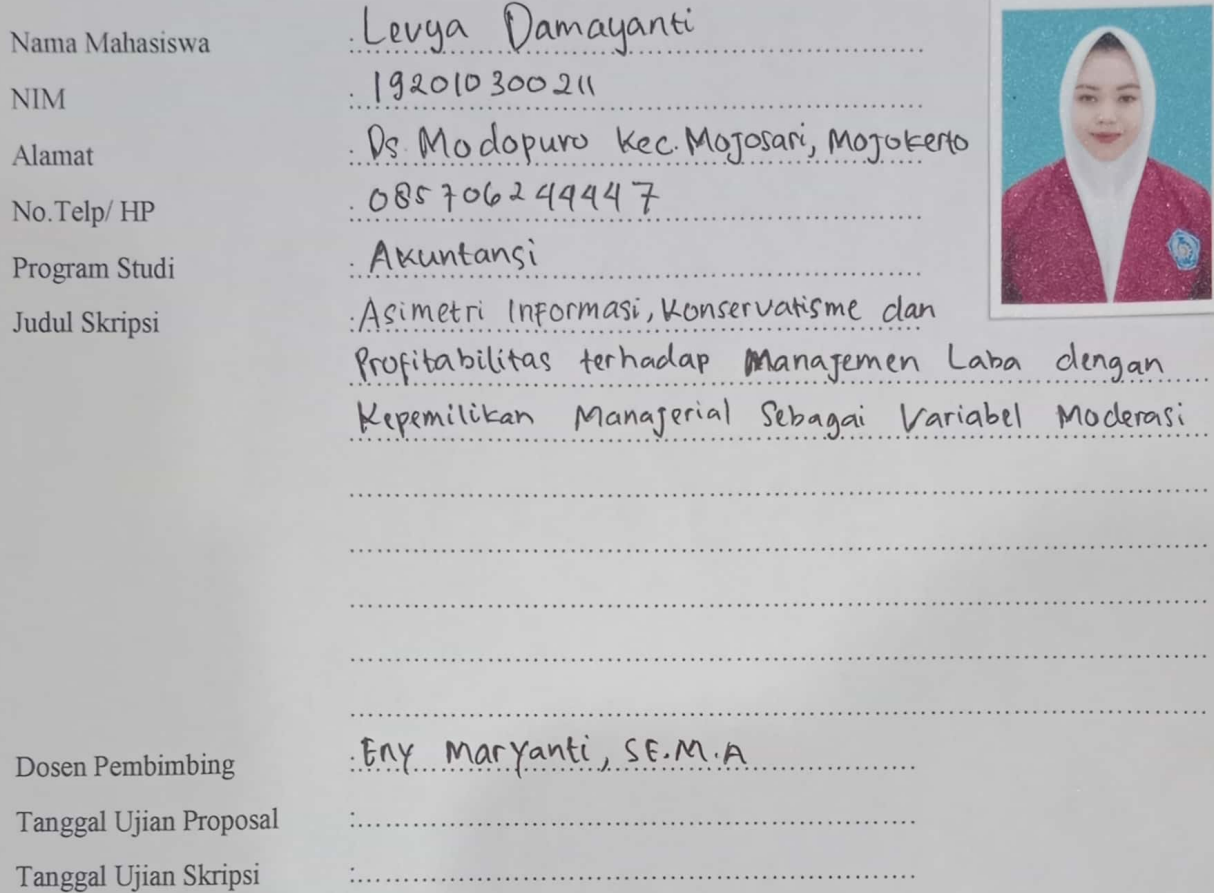 Nama Mahasiswa : Levya Damayanti
NIM : 192010300211
Alamat : Ds. Modopuro Kec. Mojosari, Mojokerto
No.Telp/ HP : 085706249447
Program Studi : Akuntansi
Judul Skripsi : Asimetri Informasi, Konservatisme dan
Profitabilitas terhadap Manajemen Laba dengan
Kepemilikan Manajerial Sebagai Variabel Moderasi
Dosen Pembimbing : Eny Maryanti, SE.M.A
Tanggal Ujian Proposal :
Tanggal Ujian Skripsi :